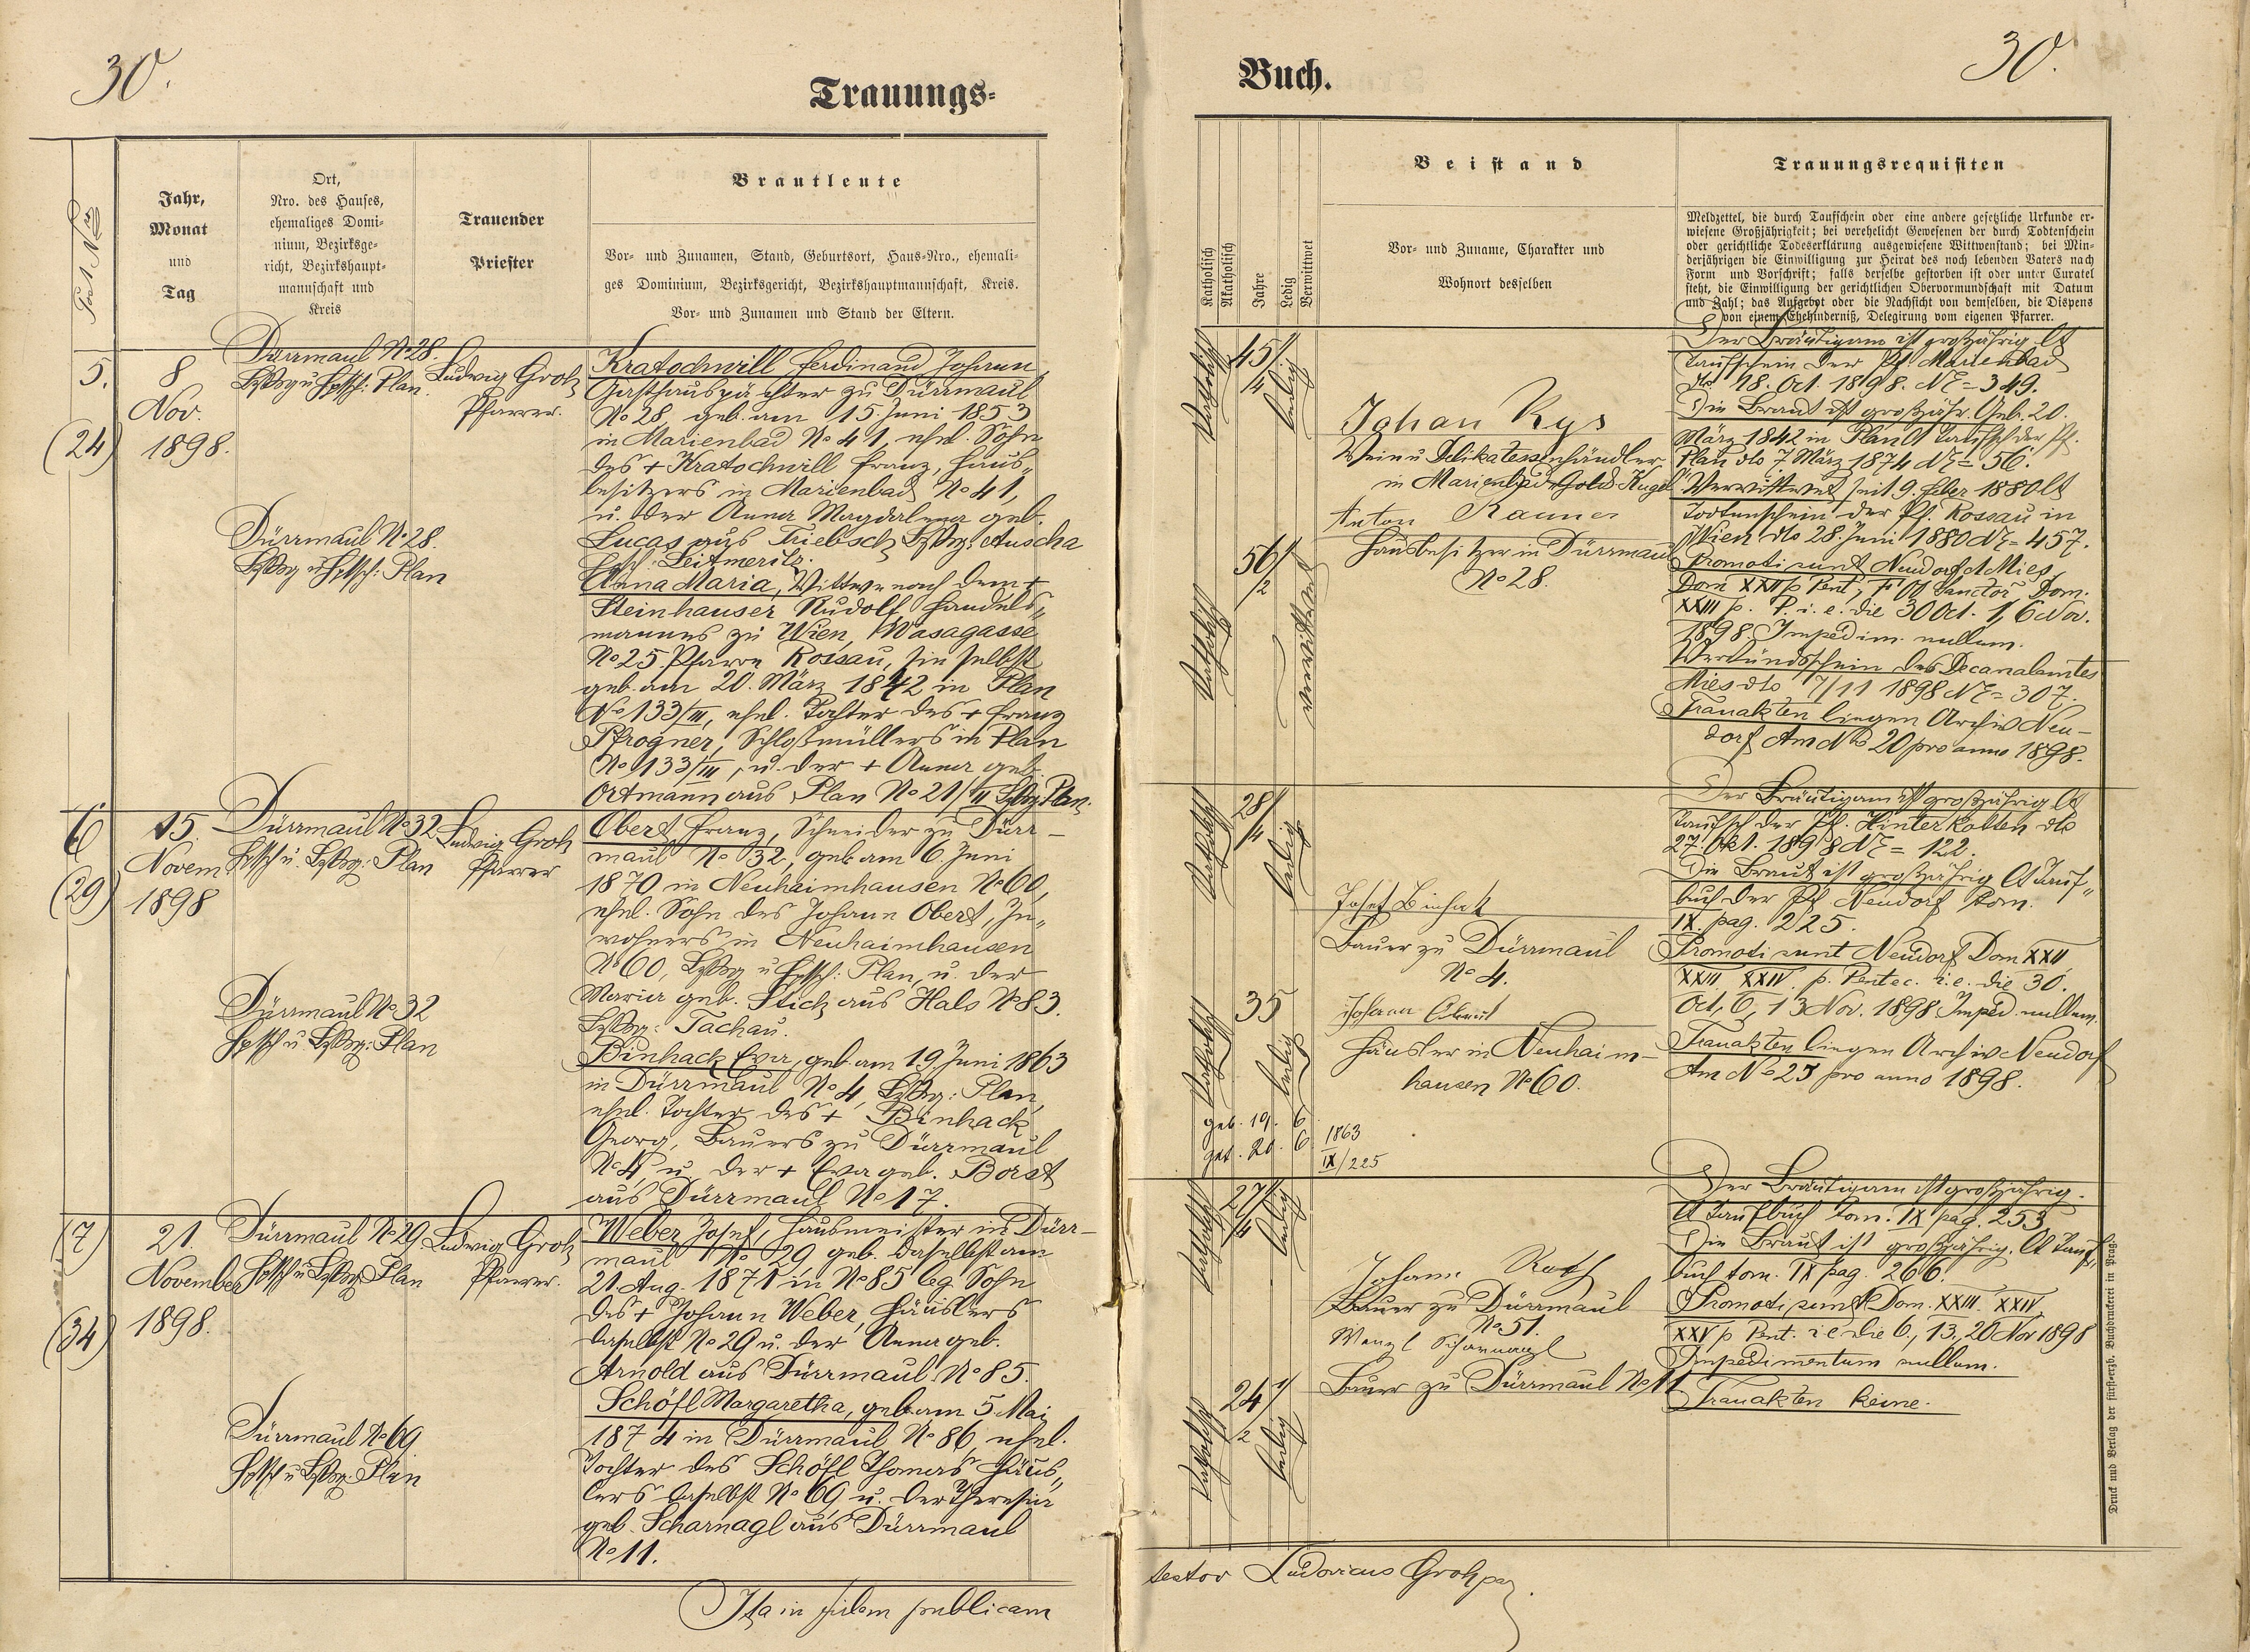 30.
Trauungs-
Post Nro
Jahr,
Monat
und
Tag
Ort,
Nro. des Hauses,
ehemaliges Domi-
nium, Bezirksge-
richt, Bezirkshaupt-
mannschaft und
Kreis
Trauender
Priester
Brautleute
Vor- und Zunamen, Stand, Geburtsort, Haus-Nro., ehemali-
ges Dominium, Bezirksgericht, Bezirkshauptmannschaft, Kreis.
Vor- und Zunamen und Stand der Eltern.
5.
(24)
8
Nov.
1898.
Dürrmaul No 28.
BzBzg u Hptsch: Plan.
Dürrmaul No 28.
BzBzg u Hptsch: Plan
Ludwig Groh
Pfarrer.
Kratochwill Ferdinand Johann,
Gasthauspächter zu Dürrmaul
No 28, geb. am 15. Juni 1853
in Marienbad No 41, ehel. Sohn
des + Kratochwill Franz, Haus„
besitzers in Marienbad No 41,
u. der Anna Magdalena geb.
Lucas aus Triebsch BzBzg: Auscha
Hptsch: Leitmeritz.
Anna Maria, Wittwe nach dem +
Steinhauser Rudolf Handels„
mannes zu Wien, Wasagasse
No 25. Pfarre Rossau, hinselbst
geb. am 20. März 1842 in Plan
No 133/III, ehel. Tochter des + Franz
Pfrogner, Schloßmüllers in Plan
No 133/III, u. der + Anna geb.
Ortmann aus Plan No 21/II BzBzg Plan.
6
(29)
15.
Novem
1898
Dürrmaul No 32
Hptsch u. BzBzg: Plan
Dürrmaul No 32
Hptsch u. BzBzg: Plan
Ludwig Groh
Pfarrer
Obert Franz, Schneider zu Dürr-
maul No 32, geb. am 6. Juni
1870 in Neuhaimhausen No 60,
ehel. Sohn des Johann Obert, In„
wohners in Neuhaimhausen
No 60, BzBzg u Hptsch: Plan, u. der
Maria geb. Stich aus Hals No 83.
BzBzg: Tachau.
Binhack Eva, geb. am 19. Juni 1863
in Dürrmaul No 4, BzBzg: Plan,
ehel. Tochter des + Binhack
Georg, Bauers zu Dürrmaul
No 4 u. der + Eva geb. Borst
aus Dürrmaul No 17.
(7)
(34)
21.
November
1898.
Dürrmaul No 29
Hptsch u BzBzg Plan
Dürrmaul No 69
Hptsch u BzBzg. Plan
Ludwig Groh
Pfarrer.
Weber Josef, Hausmeister in Dürr-
maul No 29 geb. daselbst am
21. Aug. 1871 in No 85 leg. Sohn
des + Johann Weber, Häuslers
daselbst No 29 u. der Anna geb.
Arnold aus Dürrmaul No 85.
Schöfl Margaretha, geb. am 5 Mai
1874 in Dürrmaul No 86, ehel.
Tochter des Schöfl Thomas Häus„
lers daselbst No 69 u. der Theresia
geb. Scharnagl aus Dürrmaul
No 11.
Ita in fidem publicam
Buch.
30.
Katholisch
Akatholisch
Jahre
Ledig
Verwittwet
Beistand
Vor- und Zuname, Charakter und
Wohnort desselben
Trauungsrequisiten
Meldzettel, die durch Taufschein oder eine andere gesetzliche Urkunde er-
wiesene Großjährigkeit; bei verehelicht Gewesenen der durch Todtenschein
oder gerichtliche Todeserklärung ausgewiesene Wittwenstand; bei Min-
derjährigen die Einwilligung zur Heirat des noch lebenden Vaters nach
Form und Vorschrift; falls derselbe gestorben ist oder unter Curatel
steht, die Einwilligung der gerichtlichen Obervormundschaft mit Datum
und Zahl; das Aufgebot oder die Nachsicht von demselben, die Dispens
von einem Ehehinderniß, Delegirung vom eigenen Pfarrer.
Katholisch
45 1/4
ledig
Katholisch
56 1/2
verwittwet
Johan Rys
Wein u Delikatessenhändler
in Marienbad Gold. Kugel
Anton
Hausbesitzer in Dürrmaul
No 28.
Der Bräutigam ist großjährig lt
Taufschein der Pf. Marienbad
dto 18. Oct. 1898. NE = 349.
Die Braut ist großjähr. Geb. 20.
März 1842 in Plan lt Taufsch der Pf.
Plan dto 7 März 1874 NE = 56.
Verwittwet seit 9. Feber 1880 lt
Todtenschein der Pf. Rossau in
Wien dto 28. Juni 1880 NE = 457.
Promoti sunt Neudorf et Mies
Dom XXII p Pent, F. O Sanctor, Dom.
XXIII p. P. i. e. die 30 Oct. 1, 6 Nov.
1898. Impedim. nullum.
Verkündschein des Decanalamtes
Mies dto 7/11 1898 NE = 307.
Trauakten liegen Archiv Neu-
dorf Am No 20 pro anno 1898.
Katholisch
28 1/4
ledig
Katholisch
35
ledig
geb. 19. 6. 1863
get. 20. 6. IX/225
Josef Binhak
Bauer zu Dürrmaul
No 4.
Johann Obert
Häusler in Neuhaim-
hausen No 60.
Der Bräutigam ist großjährig lt
Taufsch der Pf. Hinterkotten dto
27. Okt. 1898 NE = 122.
Die Braut ist großjährig lt Tauf„
buch der Pf Neudorf tom.
IX. pag. 225.
Promoti sunt Neudorf Dom XXII
XXIII XXIV. p. Pentec. i. e. die 30.
Oct, 6, 13 Nov. 1898 Imped. nullum.
Trauakten liegen Archiv Neudorf
Am No 25 pro anno 1898.
Katholisch
27 1/4
ledig
Katholisch
24 1/2
ledig
Johann Roth
Bauer zu Dürrmaul
No 51.
Wenzl Scharnagl
Bauer zu Dürrmaul No 11
Der Bräutigam ist großjährig.
lt Taufbuch tom. IX pag. 253
Die Braut ist großjährig. lt Tauf„
buch tom. IX pag. 266.
Promoti sunt Dom. XXIII. XXIV,
XXV p Pent. i e die 6., 13., 20 Nov 1898
Impedimentum nullum.
Trauakten keine.
Druck und Verlag der fürst-erzb. Buchdruckerei in Prag.
testor Ludovicus Groh